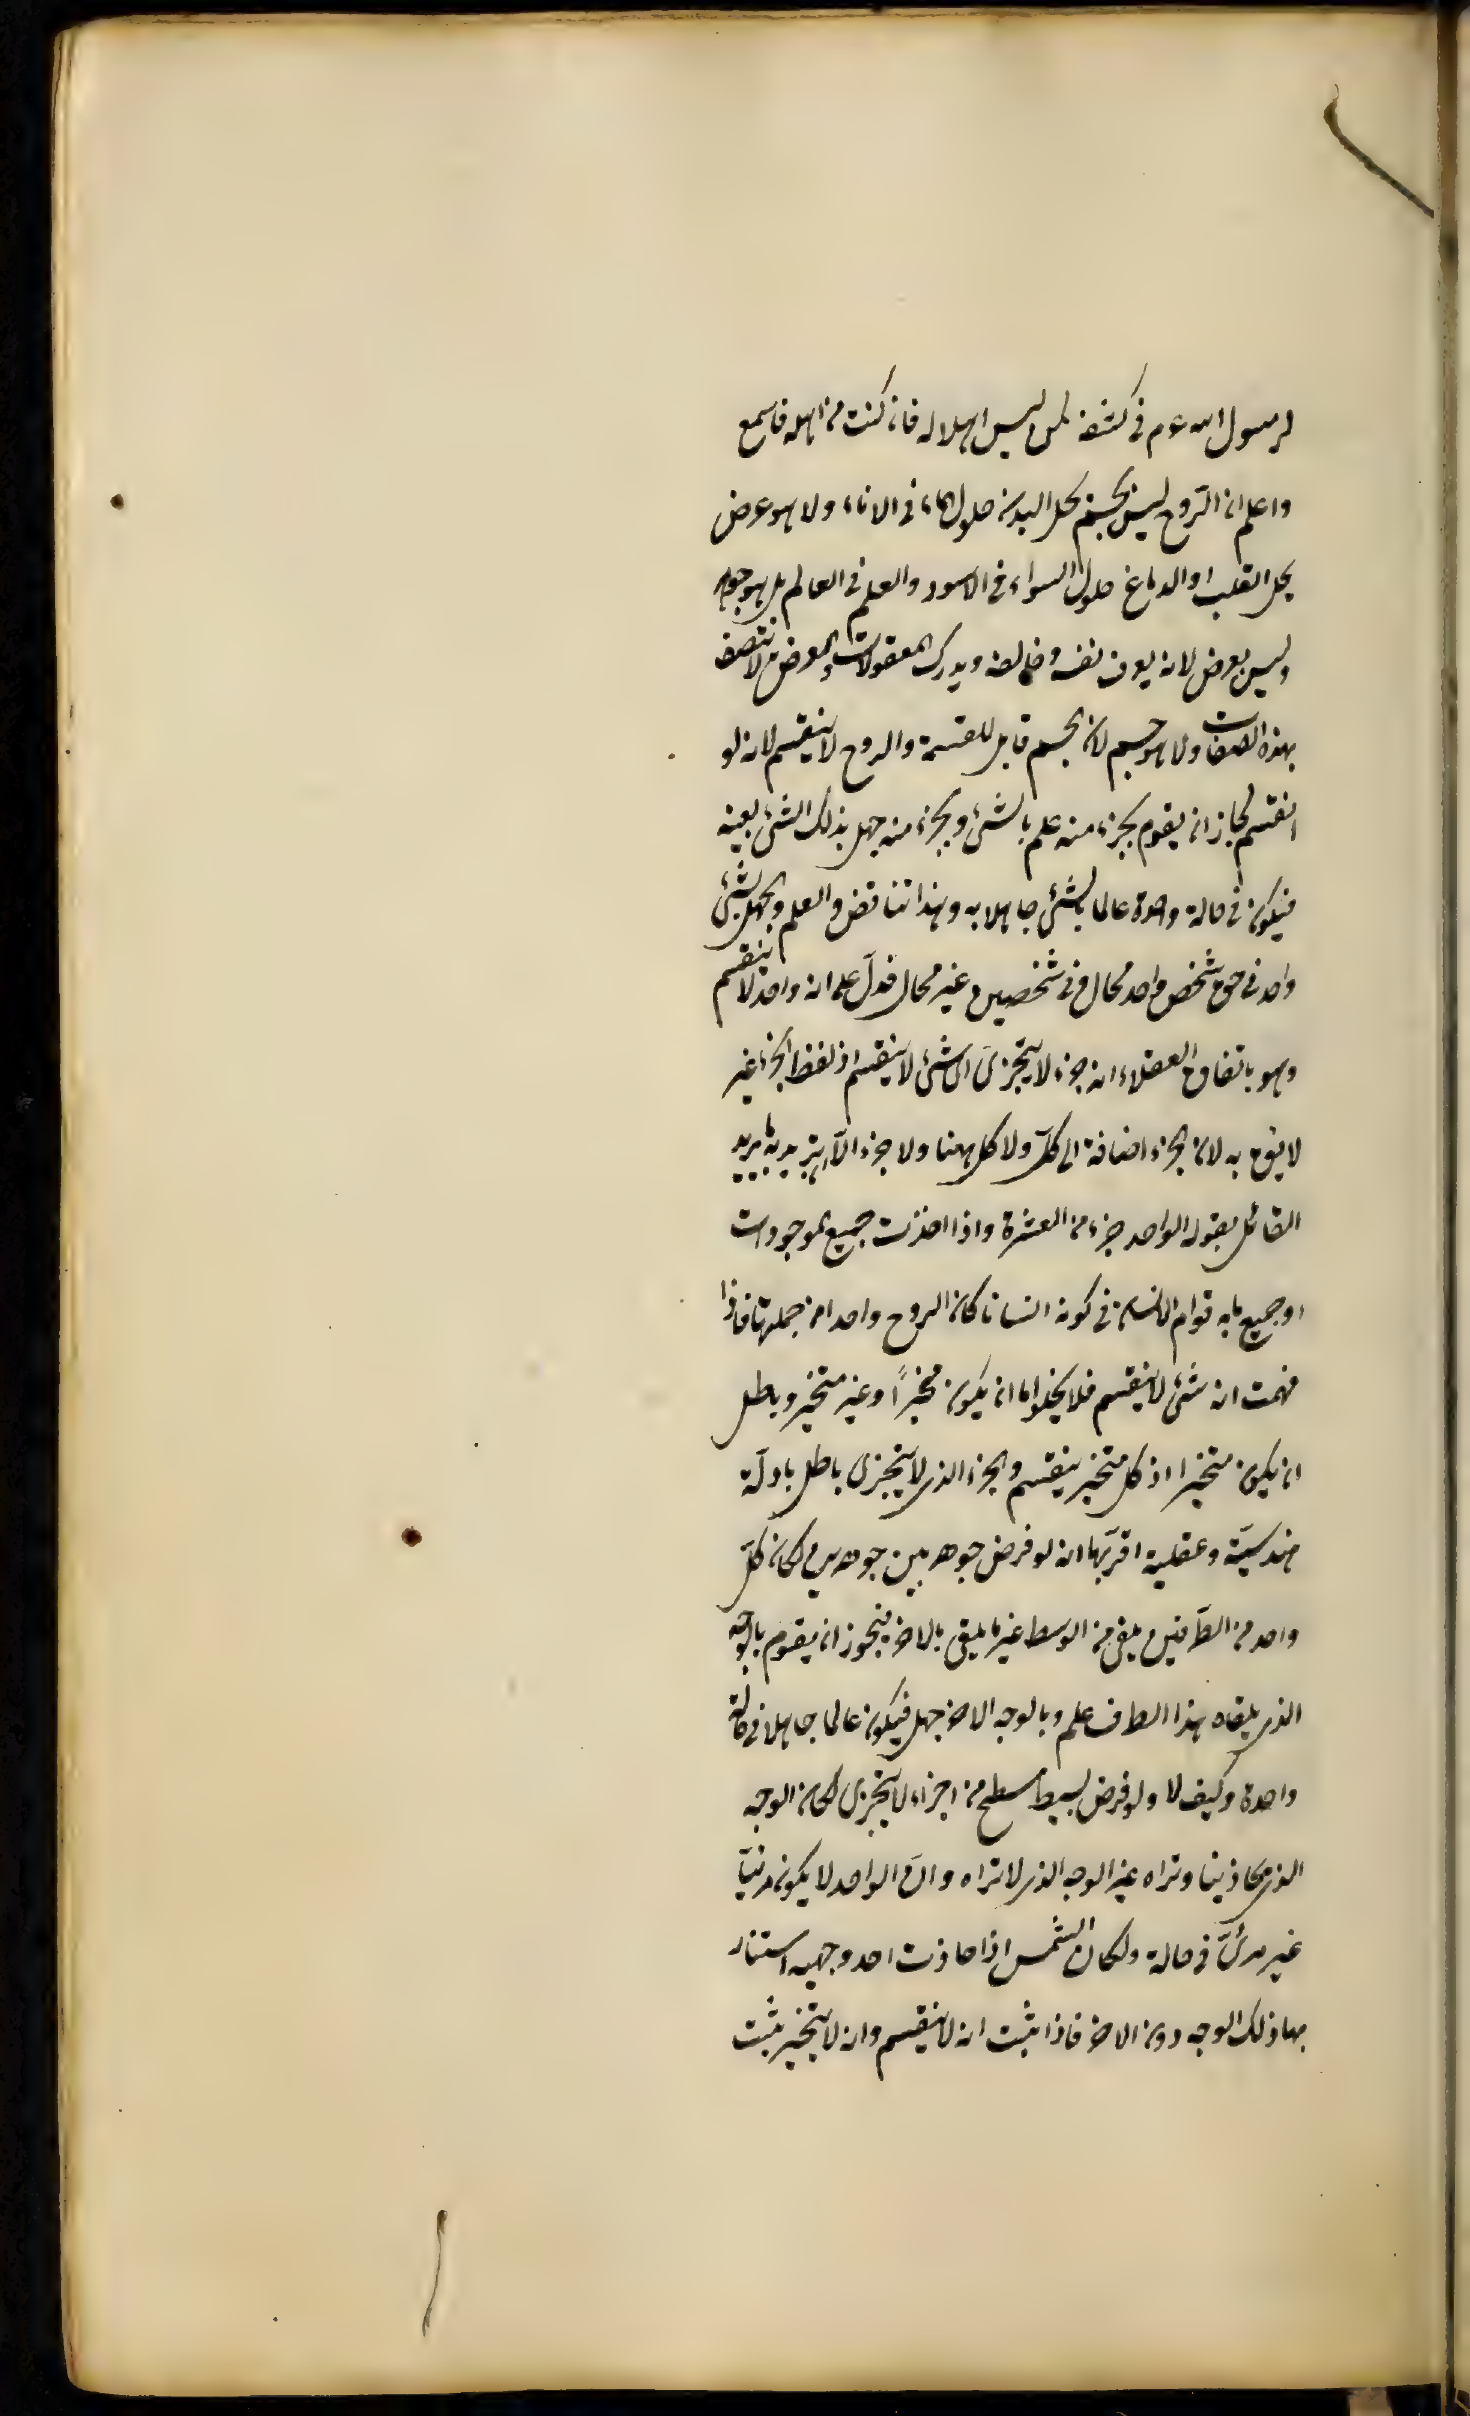 لرسول الله عم في كشفه لمن ليس اهلا له فان كنت من اهله فاسمع
واعلم ان الرّوح ليس بجسم يحل البدن حلول الماء في الاناء ولا هو عرض
يحل القلب او الدماغ حلول السواد في الاسود والعلم في العالم بل هو جوهر
وليس بعرض لانه يعرف نفسه وخالقه ويدرك المعقولات والعرض لا يتصف
بهذه الصفات ولا هو جسم لان الجسم قابل للقسمة والروح لا ينقسم لانه لو
انقسم لجاز ان يقوم بجزء منه علم بالشئ وبجزء منه جهل بذلك الشئ بعينه
فيكون في حالة واحدة عالما بالشئ جاهلا به وهذا تناقض والعلم والجهل بشئ
واحد في حق شخص واحد محال وفي شخصين غير محال فدلّ على انه واحد لا ينقسم
وهو باتفاق العقلاء انه جزء لا يتجزى اى شئ لا ينقسم اذ لفظ الجزء غير
لايق به لان الجزء اضافة الى كلّ ولا كل ههنا ولا جزء الّا ان يريد به ما يريد
القائل بقوله الواحد جزء من العشرة واذا اخذت جميع الموجودات
او جميع ما به قوام الانسان في كونه انسانا كان الروح واحدا من جملتها فاذا
فهمت انه شئ لا ينقسم فلا يخلوا اما ان يكون متحيزاً او غير متحيز وباطل
ان يكون متحيزا اذ كل متحيز ينقسم والجزء الذى لا يتجزى باطل بادلّة
هندسيّة وعقلية اقربها انه لو فرض جوهر بين جوهرين لكان كلّ
واحد من الطّرفين يلقى من الوسط غير ما يلقى بالاخر فيجوز ان يقوم بالوجه
الذى يلقاه هذا الطرف علم وبالوجه الاخر جهل فيكون عالما جاهلا في حالة
واحدة وكيف لا ولو فرض بسيط مسطح من اجزاء لا يتجزى لكان الوجه
الذى يحاذينا ونراه غير الوجه الذى لا نراه وانّ الواحد لا يكون مرئيّا
غير مرئىّ في حالة ولكان الشمس اذا حاذت احد وجهيه استنار
بها ذلك الوجه دون الاخر فاذا ثبت انه لا ينقسم وانه لا يتحيز ثبت